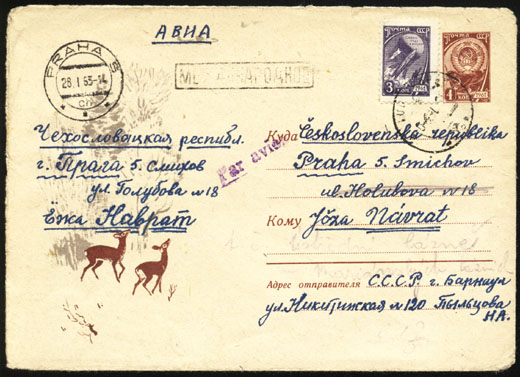 АВИА
PRAHA
28.I.63-14
МЕЖДУНАРОДНОЕ
ПОЧТА СССР
3 КОП
ПОЧТА СССР
4 КОП
Чехословацкая республ.
г. Прага 5. Смихов
ул. Голубова №18
Ёжа Наврат
Par avion
Куда Československá republika
Praha 5. Smíchov
ul. Holubova №18
Кому Jóža Návrat
Адрес отправителя С.С.С.Р. г. Барнаул
ул. Никитинская №120 Пыльцова
НА.